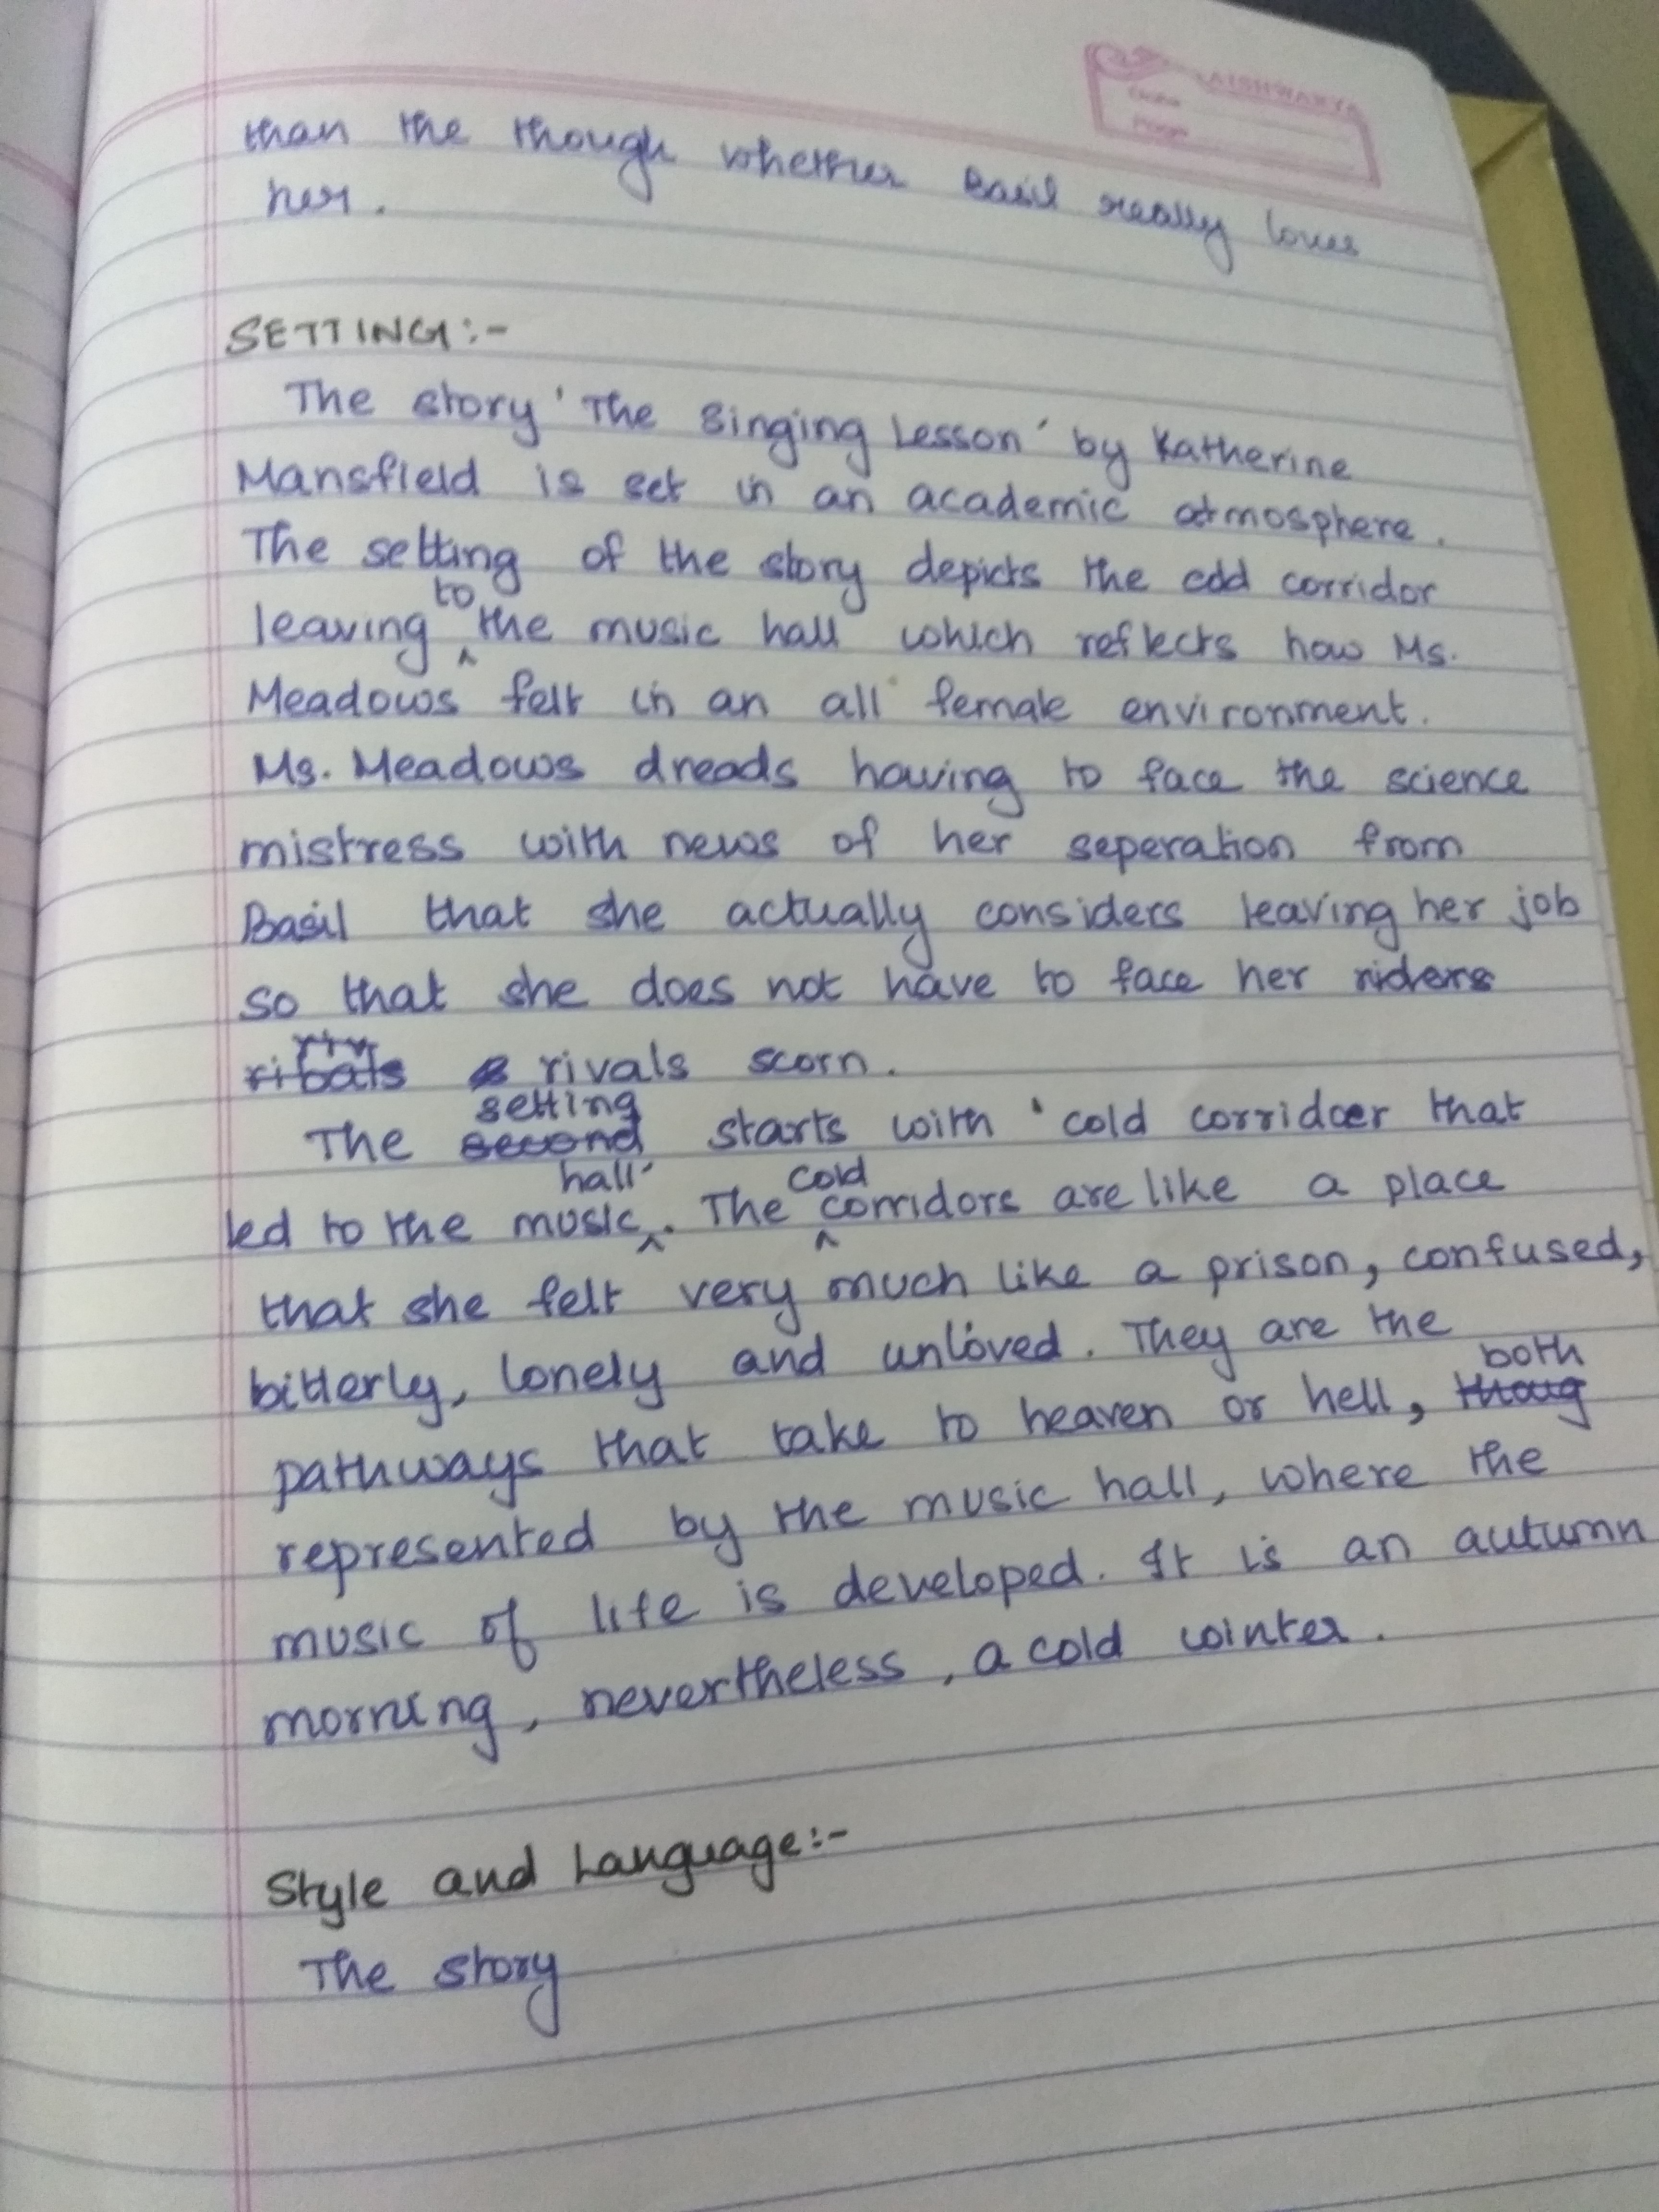 AISHWARYA
Date
Page
than the though whether Basil really loves
her.
SETTING:-
The story 'The Singing Lesson' by Katherine
Mansfield is set in an academic atmosphere.
The setting of the story depicts the cold corridor
leaving to the music hall which reflects how Ms.
Meadows felt in an all female environment.
Ms. Meadows dreads having to face the science
mistress with news of her seperation from
Basil that she actually considers leaving her job
so that she does not have to face her riders
ribals rivals scorn.
The setting starts with 'cold corridoer that
led to the music hall'. The cold corridors are like a place
that she felt very much like a prison, confused,
bitterly, lonely and unloved. They are the
pathways that take to heaven or hell, both
represented by the music hall, where the
music of life is developed. It is an autumn
morning, nevertheless, a cold winter.
Style and Language:-
The story